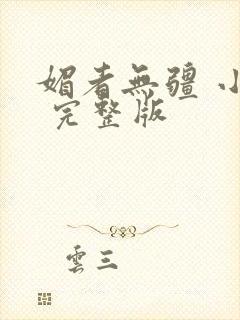 媚者無疆 小
完整版
雲三